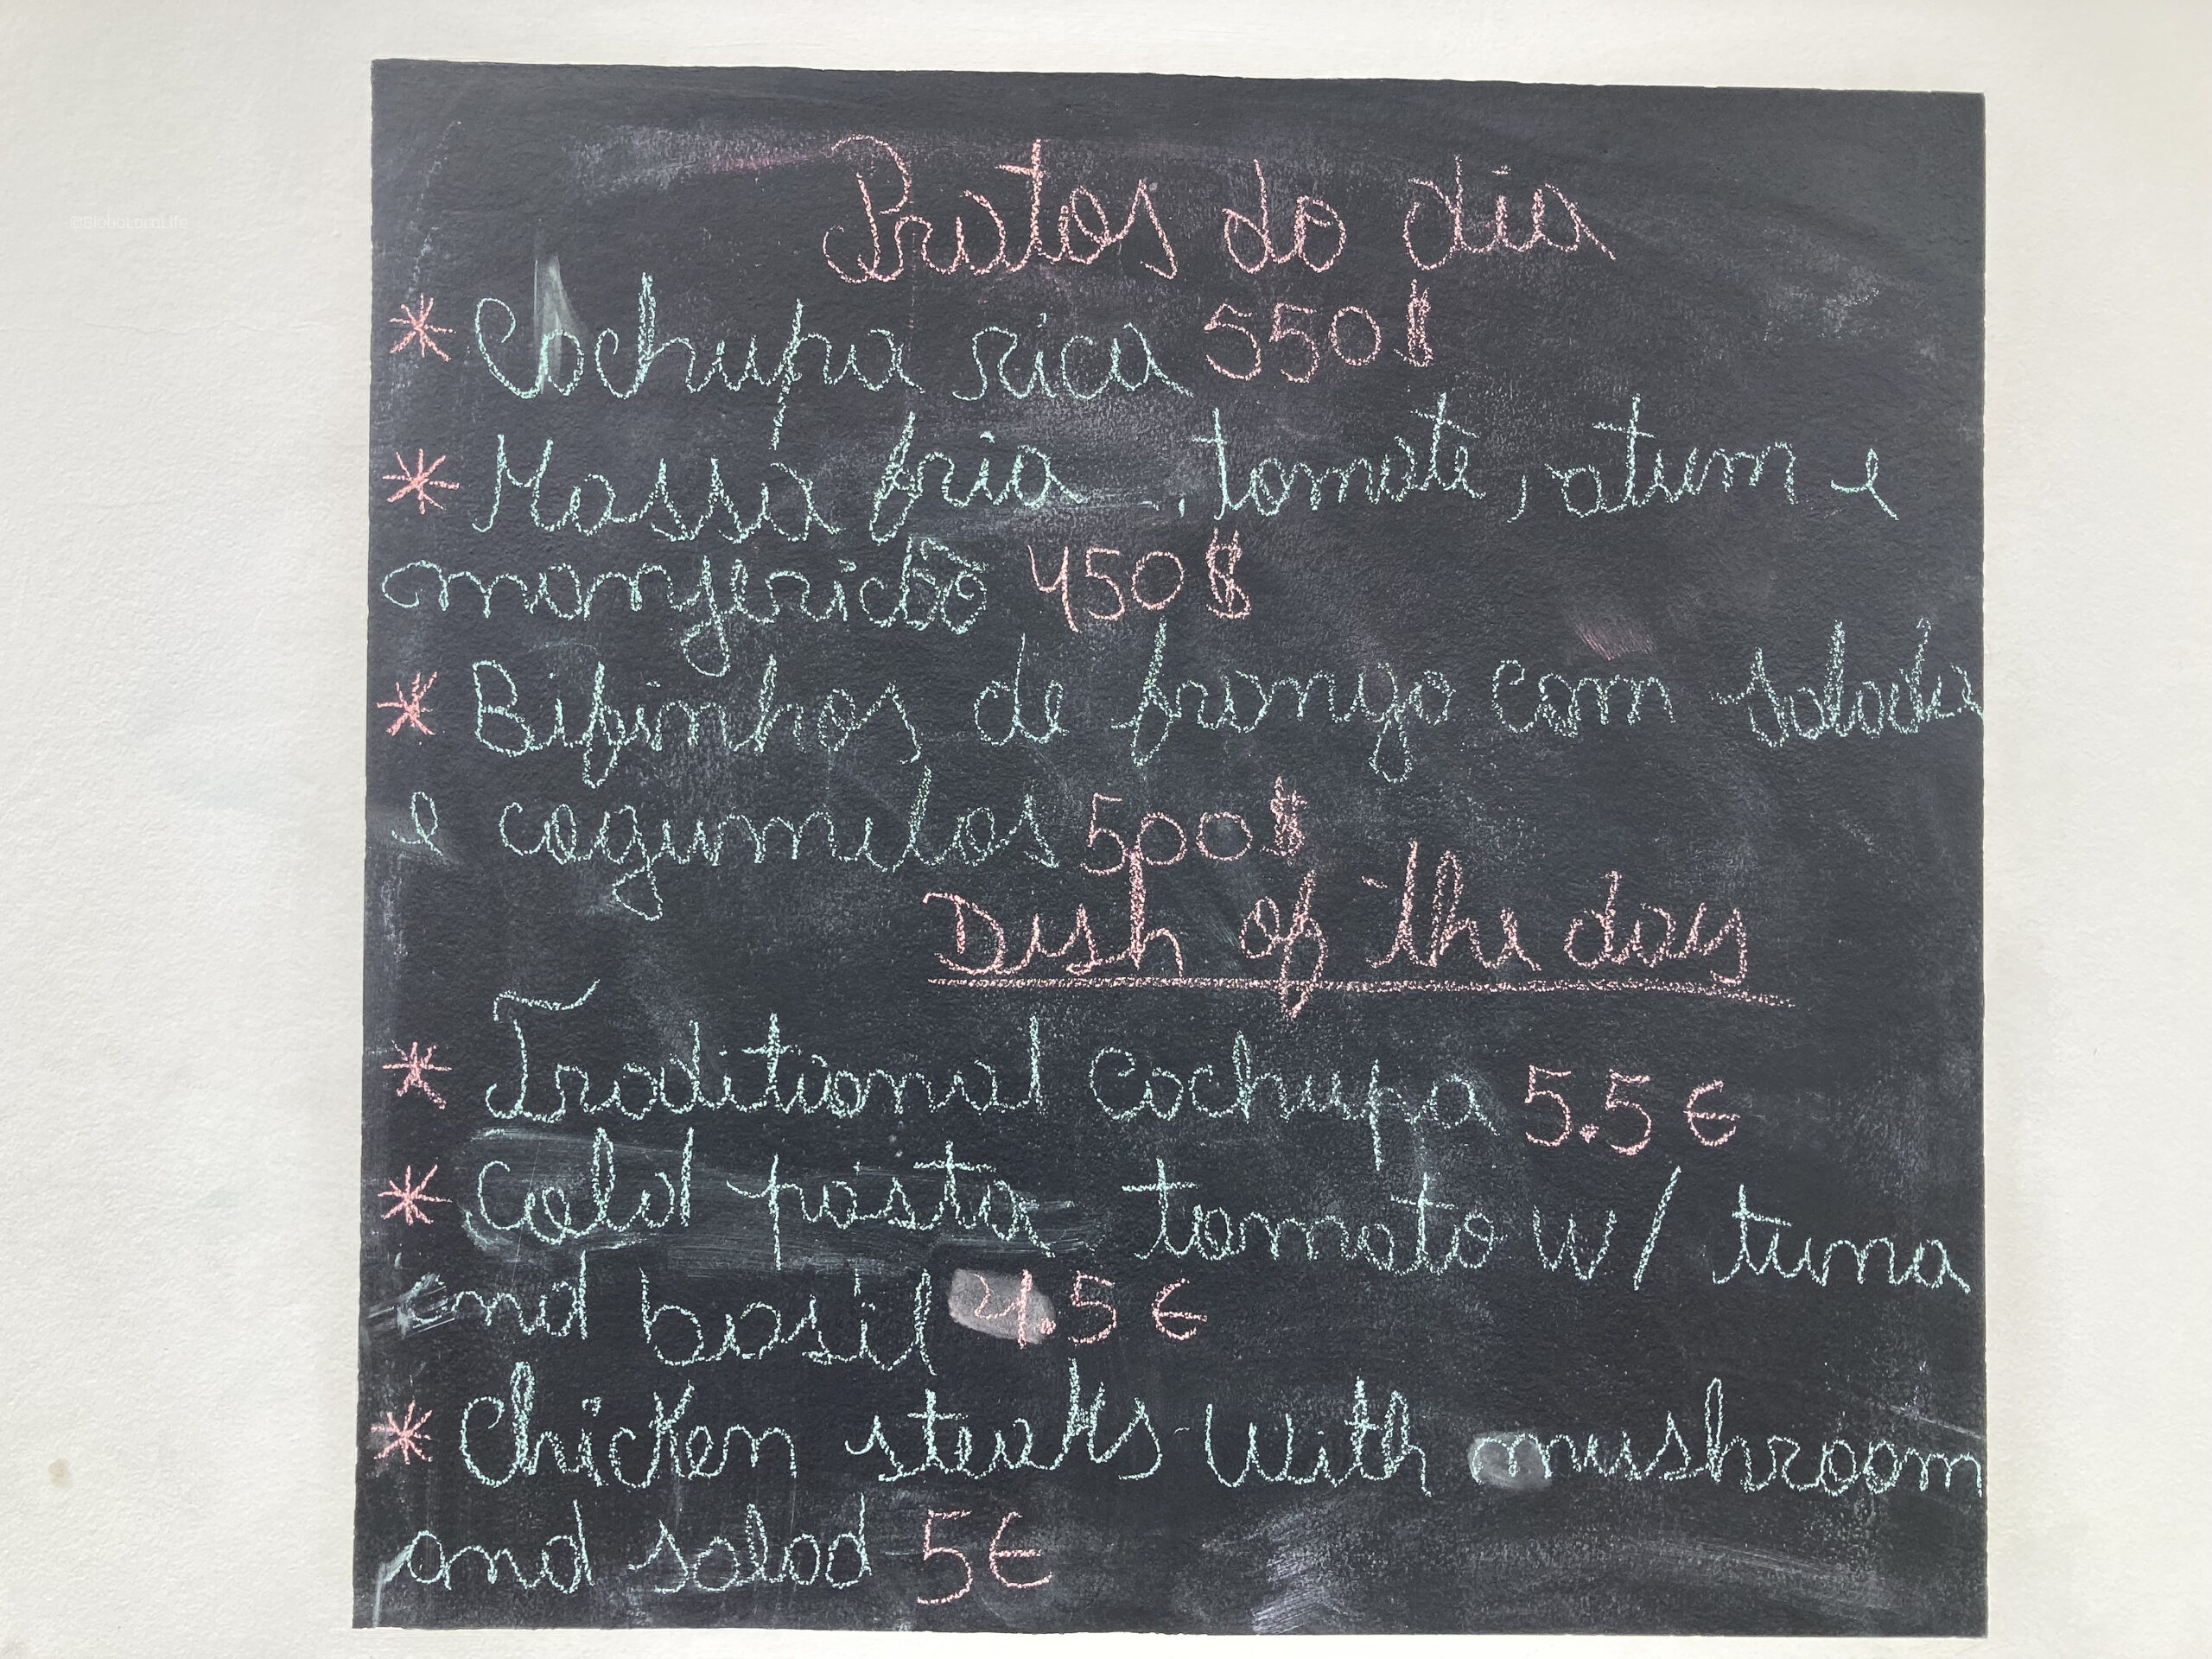 Pratos do dia
* Cachupa rica 550$
* Massa fria, tomate, atum e
manjericão 450$
* Bifinhos de frango com salada
e cogumelos 500$
Dish of the day
* Traditional Cachupa 5.5€
* Cold pasta, tomato w/ tuna
and basil 4.5€
* Chicken steaks With mushroom
and salad 5€
©GloboLocoLife